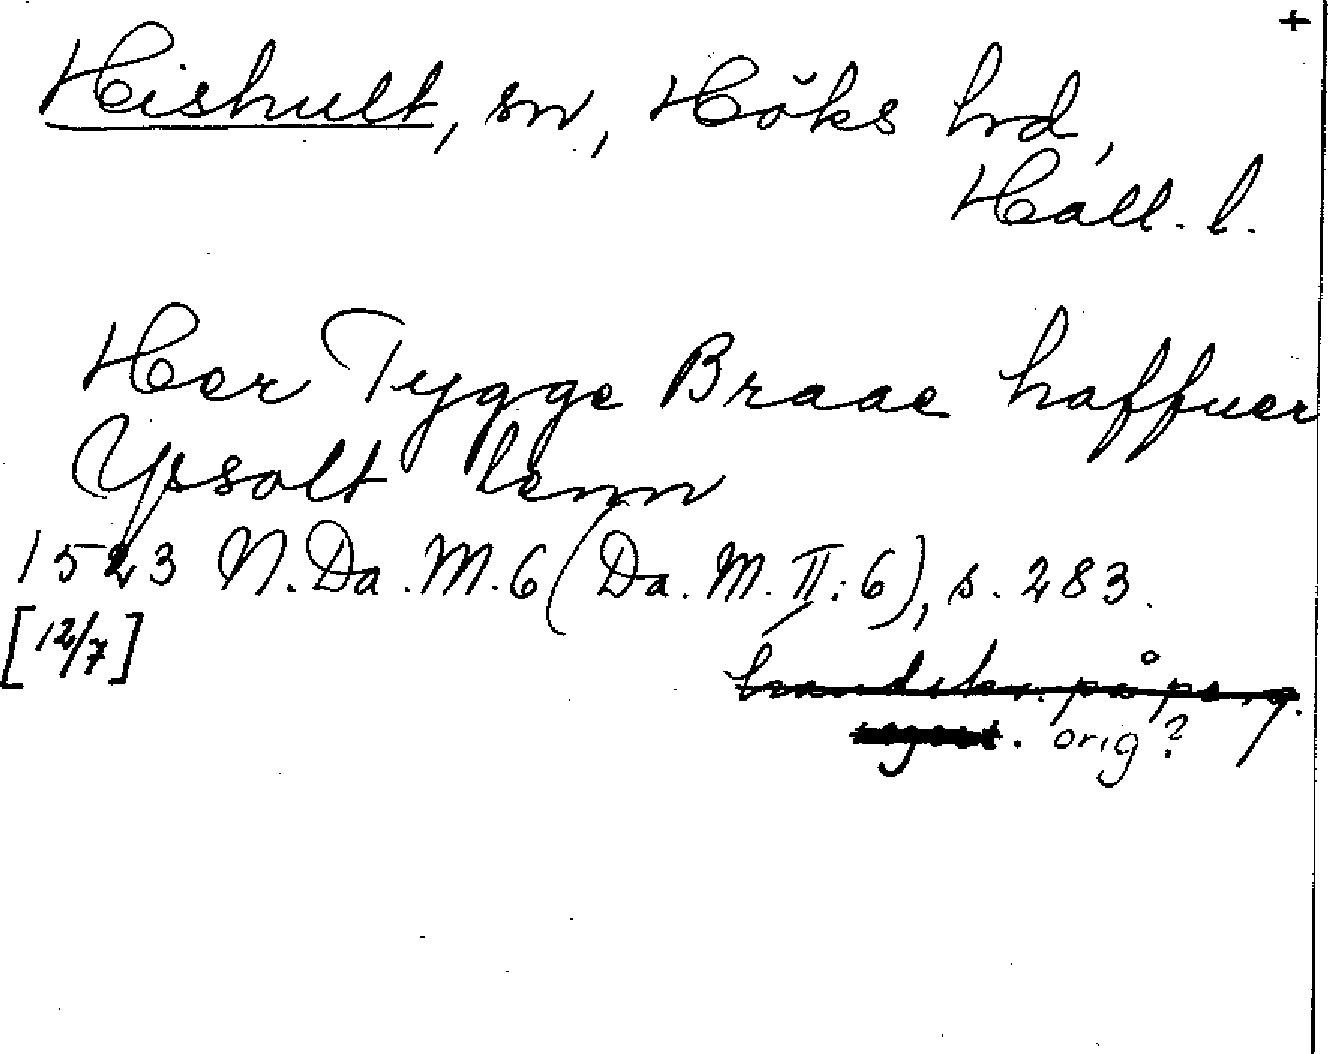 +
Hishult, sn, Höks hrd,
Hall. l.
Her Tygge Braae haffuer
Ypsolt lenn
1523 N. Da. M. 6 (Da. M. II: 6), s. 283.
[12/7]
handskr. på perg.
orig?